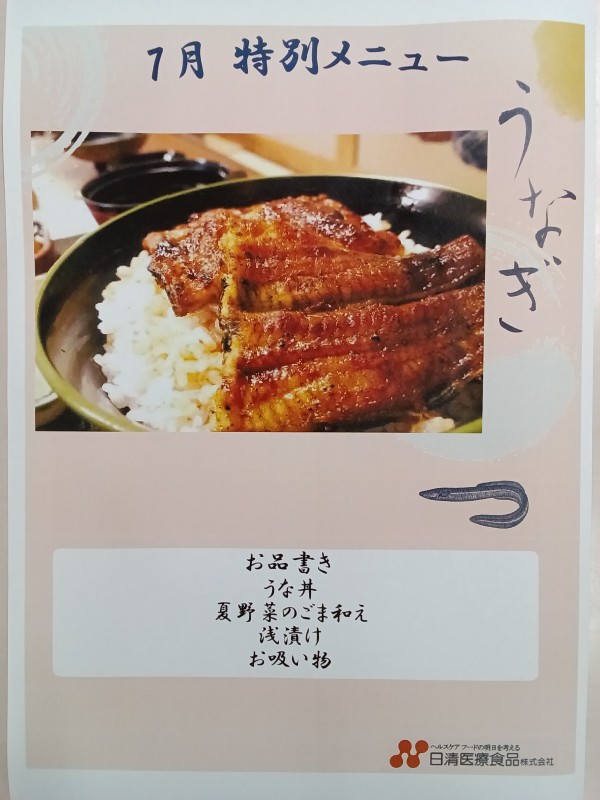 7月 特別メニュー
うなぎ
お品書き
うな丼
夏野菜のごま和え
浅漬け
お吸い物
ヘルスケアフードの明日を考える
日清医療食品株式会社